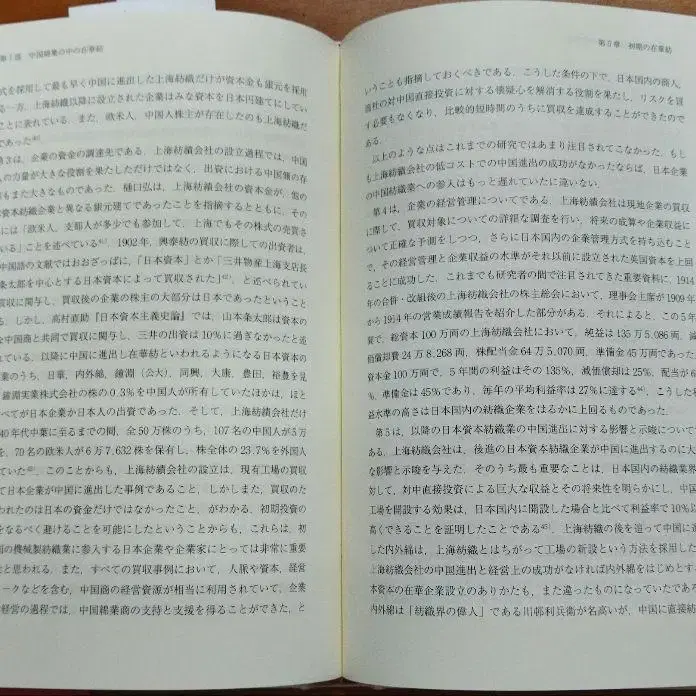 第1部 中国綿業の中の在華紡
式を採用して最も早く中国に進出した上海紡織だけが資本金も銀元を採用
る一方，上海紡織以降に設立された企業はみな資本を日本円建てにしてい
ことに表れている．また，欧米人，中国人株主が存在したのも上海紡織だ
であった
第3は，企業の資金の調達先である．上海紡績会社の設立過程では，中国
人の力量が大きな役割を果たしただけではなく，出資における中国側の存
もまた大きなものであった．樋口弘は，上海紡績会社の資本金が，他の
資本紡織企業と異なる銀元建てであったことを指摘するとともに，その
には「欧米人，支那人が多少でも参加して，上海でもその株式の売買さ
いる」ことを述べている．1902年，興泰紡の買収に際しての出資者は，
中国語の文献ではおおざっぱに，「日本資本」とか「三井物産上海支店長
条太郎を中心とする日本資本によって買収された」，と述べられてい
買収に関与し，買収後の企業の株主の大部分は日本であったということ
る．しかし，高村直助『日本資本主義史論』では，山本条太郎は資本の
を中国商と共同で買収に関与し，三井の出資は10%に過ぎなかったと述
れている．以降に中国に進出し在華紡といわれるようになる日本資本の
業のうち，日華，内外綿，鐘淵（公大），同興，大康，豊田，裕豊を見
，鐘淵実業株式会社の株の0.3%を中国人が所有していたほかは，ほと
べてが日本企業か日本人の出資であった．そして，上海紡績会社だけ
40年代中葉に至るまでの間，全50万株のうち，107名の中国人が5万
を，70名の欧米人が6万7,632株を保有し，株全体の23.7%を外国人
ていた．このことからも，上海紡績会社の設立は，現有工場の買収
て日本企業が中国に進出した事例であること，しかしまた，買収のた
われたのは日本の資金だけではなかったこと，がわかる．初期投資の
をなるべく避けることを可能にしたということからも，これらは，初
国の機械製紡織業に参入する日本企業や企業家にとっては非常に重要
と思われる．また，すべての買収事例において，人脈や資本，経営
ークなどを含む，中国商の経営資源が相当に利用されていて，企業
経営の過程では，中国綿業商の支持と支援を得ることができた，と
第5章 初期の在華紡
いうことも指摘しておくべきである．こうした条件の下で，日本国内の商人，
商社の対中国直接投資に対する懐疑心を解消される役割を果たし，リスクを冒
す必要もなくなり，比較的短時間のうちに買収を達成することができたので
ある．
以上のような点はこれまでの研究ではあまり注目されてこなかった．もし
も上海紡績会社の低コストでの中国進出の成功がなかったならば，日本企業
の中国紡織業への参入はもっと遅れていたに違いない．
第4は，企業の経営管理についてである．上海紡績会社は現地企業の買収
に際して，買収対象についての詳細な調査を行い，将来の成算や企業収益に
ついて正確な予測をしつつ，さらに日本国内の企業管理方式を持ち込むこと
で，その経営管理と企業収益の水準がそれ以前に設立された英国資本を上回
ることに成功した．これまでも研究者の間で注目されてきた重要資料に，1914
年の合併・改組後の上海紡績会社の株主総会において，理事会主席が1909年
から1914年の営業成績報告を紹介した部分がある．それによると，この5年
間で，総資本100万両の上海紡績会社において，純益は135万5,086両，減
価償却費24万8,268両，株配当金64万5,070両，準備金45万両であった
資本金100万両で，5年間の利益はその135%，減価償却は25%，配当が6
%，準備金は45%であり，毎年の平均利益率は27%に達する，こうした利
益水準の高さは日本国内の紡織企業をはるかに上回るものであった．
第5は，以降の日本資本紡織業の中国進出に対する影響と示唆について
ある．上海紡績会社は，後進の日本資本紡織企業が中国に進出するのに大
な影響と示唆を与えた．そのうち最も重要なことは，日本国内の紡織業界
対して，対中直接投資による巨大な収益とその将来性を明らかにし，中国
工場を開設する効果は，日本国内に開設した場合と比べて利益率で10%以
高くできることを証明したことである．上海紡織の後を追って中国に進
した内外綿は，上海紡織とはちがって工場の新設という方法を採用した
上海紡績会社の中国進出と経営上の成功がなければ内外綿をはじめとす
本資本の在華企業設立のありかたも，また違ったものになっていたであ
内外綿は「紡織界の偉人」である川邨利兵衛が名高いが，中国に直接紡